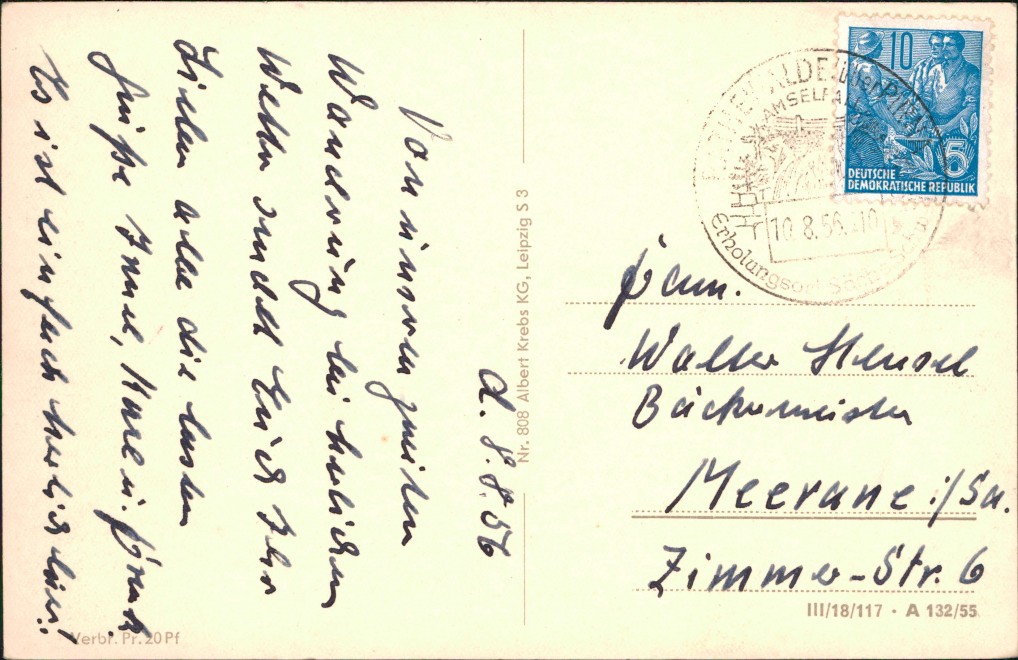 d. 8.8.56
Von unserer zweiten
Wanderung bei herlichem
Wetter sendet Euch Ihr
Lieben alle die besten
Grüße Irmel, Marl u. Frank.
Es ist einfach herlich hier!!
Fam.
Walter Hensel
Bäckermeister
Meerane i/Sa.
Zimmer-Str. 6
RATHEWALDE über PIRNA
AMSELFALL
10.8.56.-10
Erholungsort Sächs.
10
5
DEUTSCHE
DEMOKRATISCHE REPUBLIK
Nr. 808 Albert Krebs KG, Leipzig S 3
III/18/117 · A 132/55
Verbr. Pr. 20 Pf